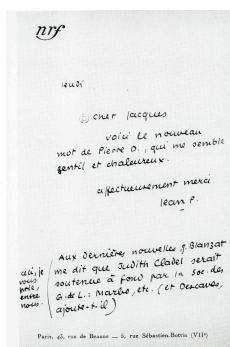 nrf
jeudi
cher Jacques
voici le nouveau
mot de Pierre O., qui me semble
gentil et chaleureux.
affectueusement merci
Jean P.
Aux Dernières nouvelles, J. Blanzat
me dit que Judith Cladel serait
soutenue à fond par la Soc. des
G. de L. : Marbo, etc. (et Descaves,
ajoute-t-il)
ceci, je
vous
prie,
entre
nous.
Paris, 43, rue de Beaune — 5, rue Sébastien-Bottin (VIIe)